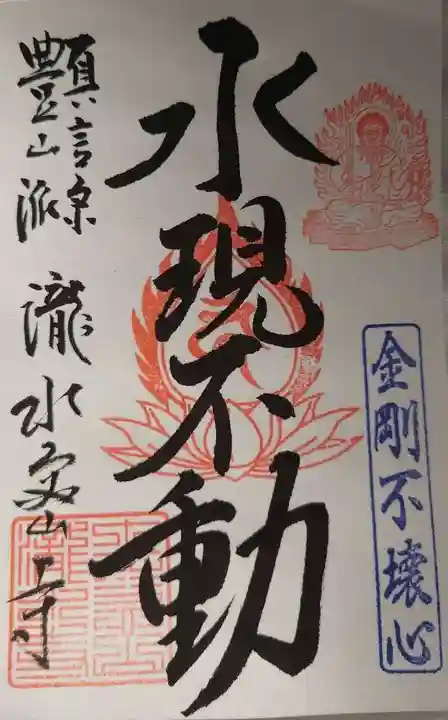 水現不動
金剛不壊心
真言宗
豊山派
瀧水
山寺